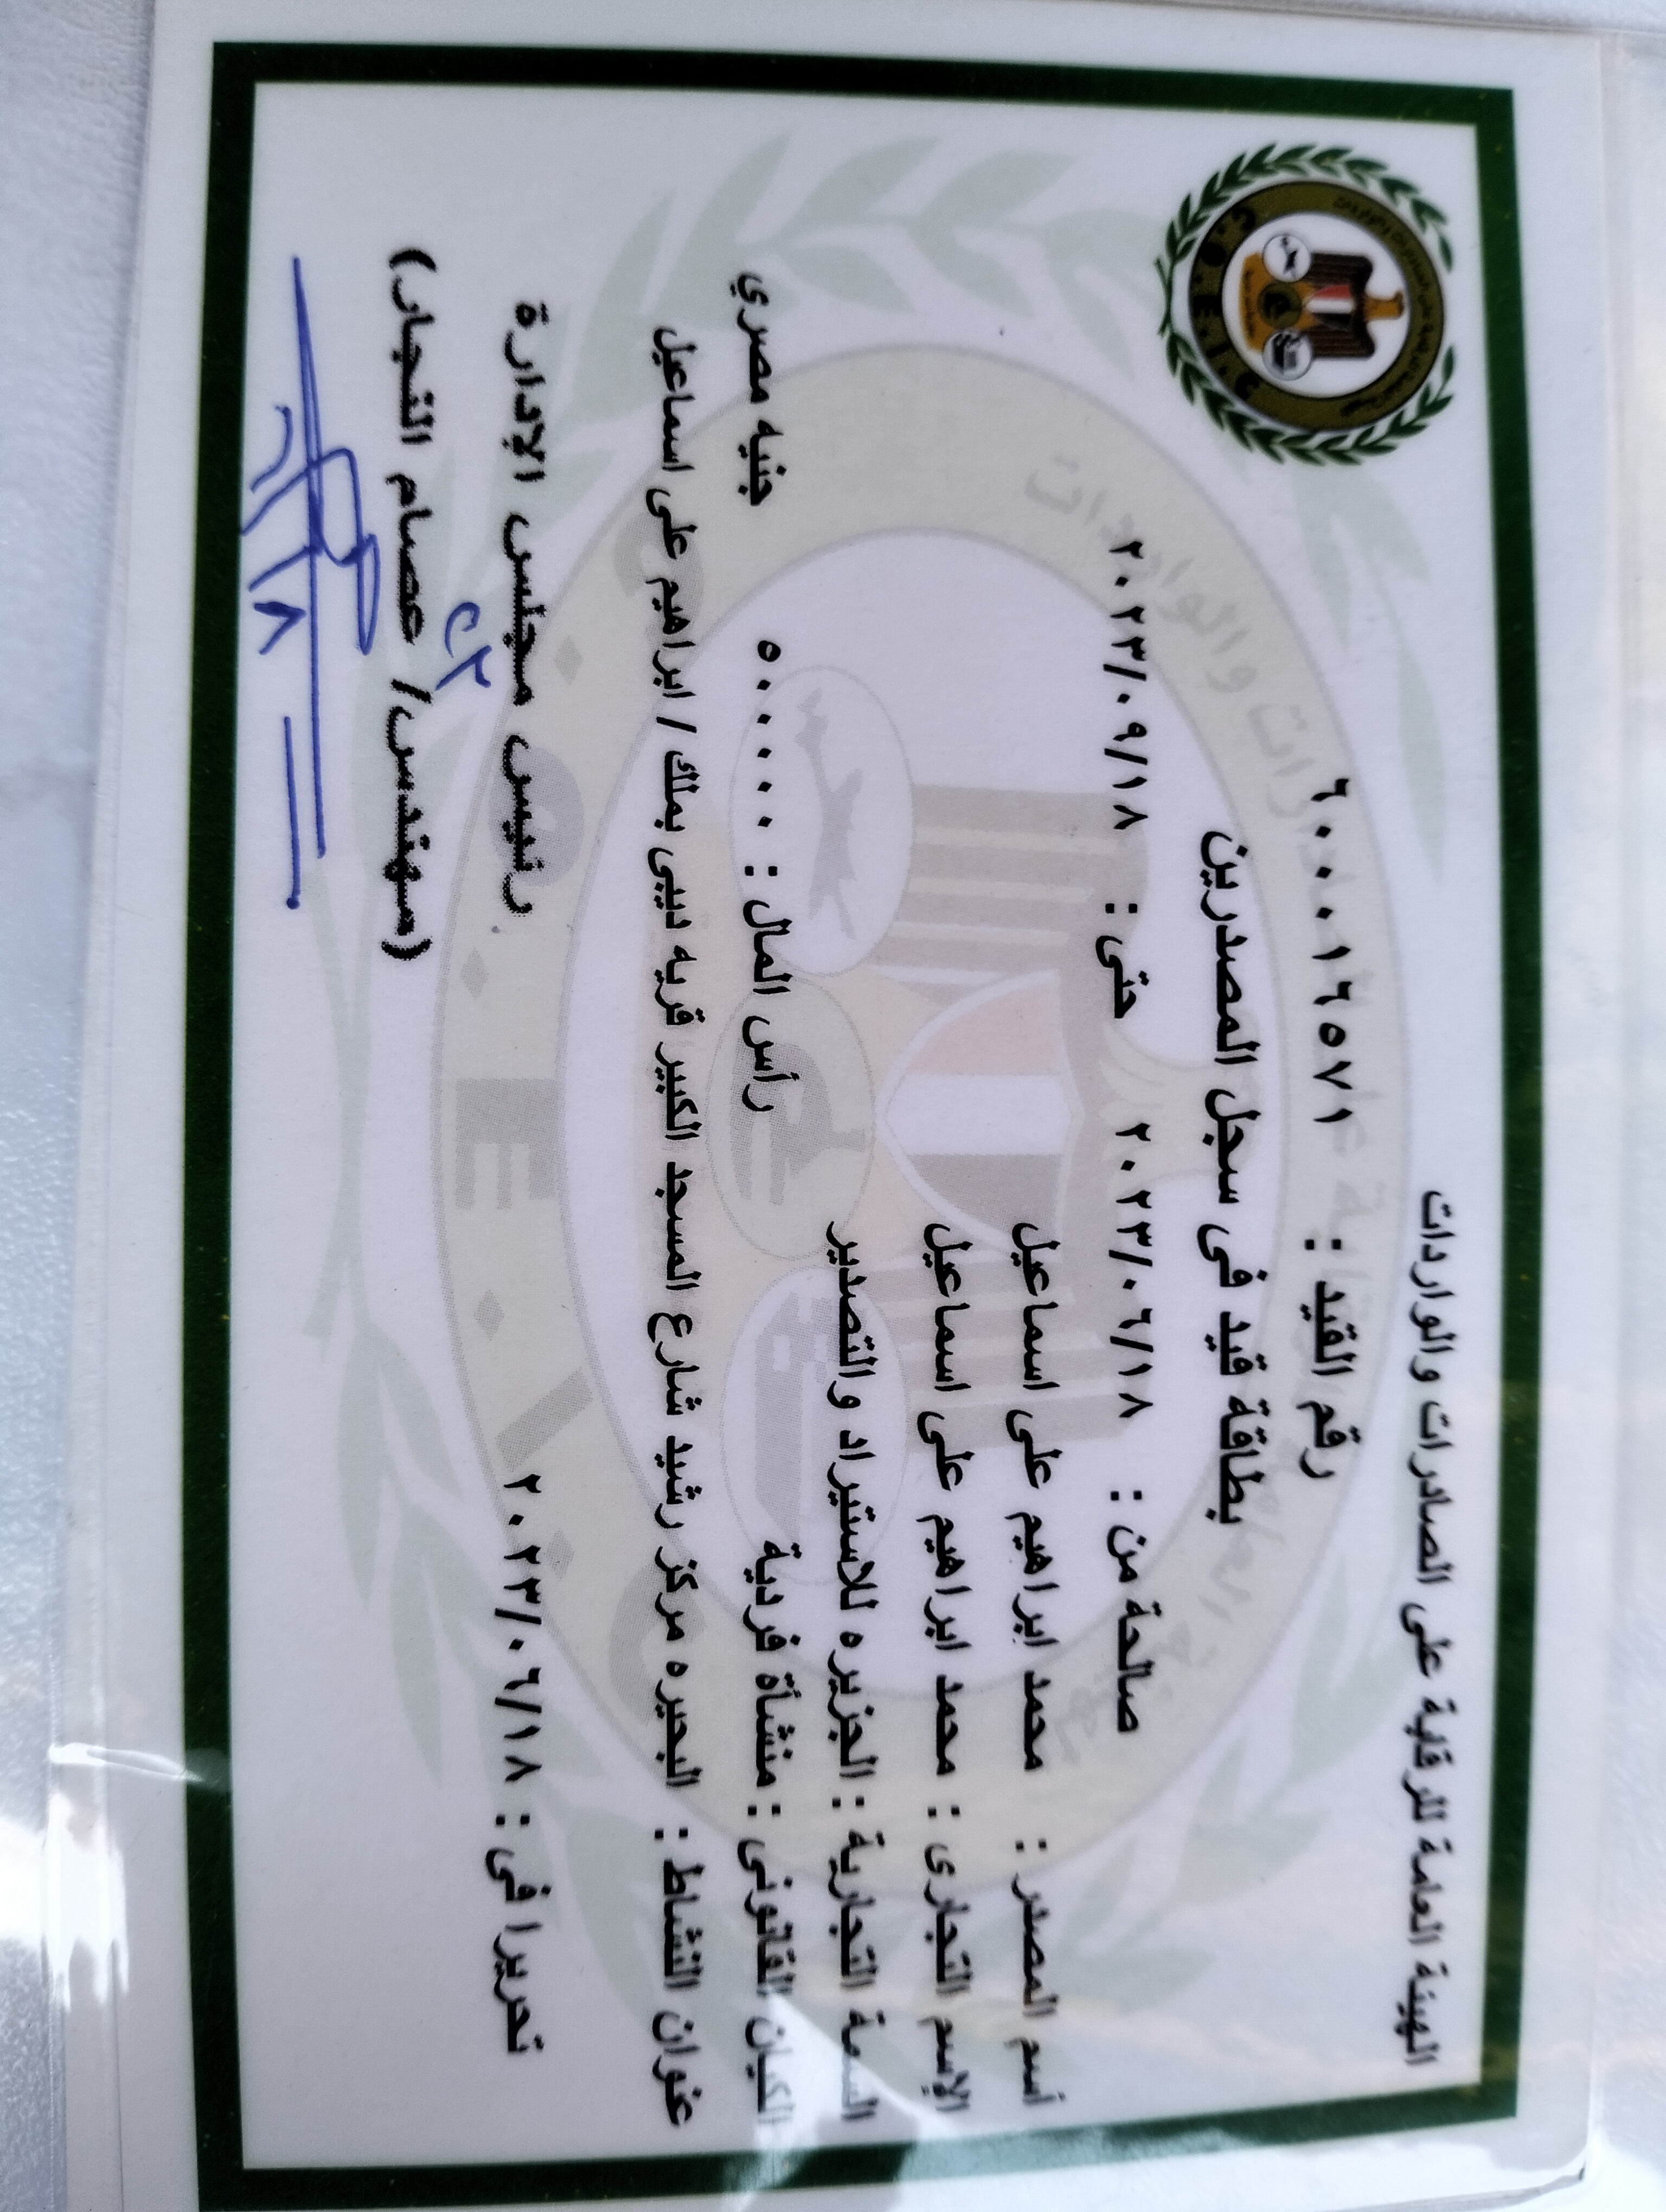 الهيئة العامة للرقابة على الصادرات والواردات
رقم القيد : ٦٠٠٠١٦٥٧١
بطاقة قيد فى سجل المصدرين
صالحة من : ٢٠٢٣/٠٦/١٨ حتى : ٢٠٢٣/٠٩/١٨
أسم المصدر : محمد ابراهيم على اسماعيل
الإسم التجارى : محمد ابراهيم على اسماعيل
السمة التجارية : الجزيره للاستيراد والتصدير
الكيان القانونى : منشأة فردية رأس المال : ٥٠٠٠٠٠ جنيه مصري
عنوان النشاط : البحيره مركز رشيد شارع المسجد الكبير قريه ديبى بملك / ابراهيم على اسماعيل
تحريرا فى : ٢٠٢٣/٠٦/١٨ رئيس مجلس الإدارة
(مهندس/ عصام النجار)